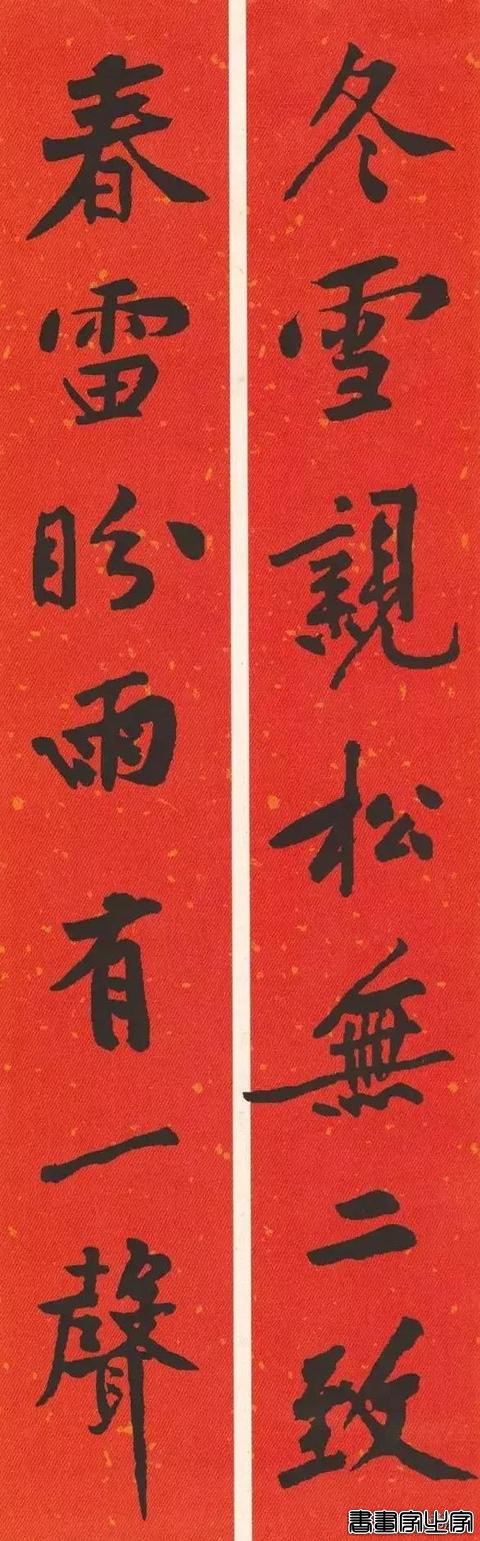 冬雪親松無二致
春雷盼雨有一聲
書畫家必字